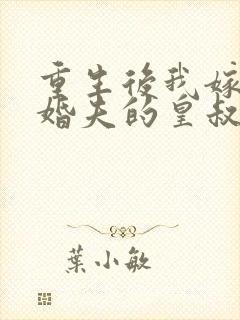 重生後我嫁
婚夫的皇叔
葉小敏